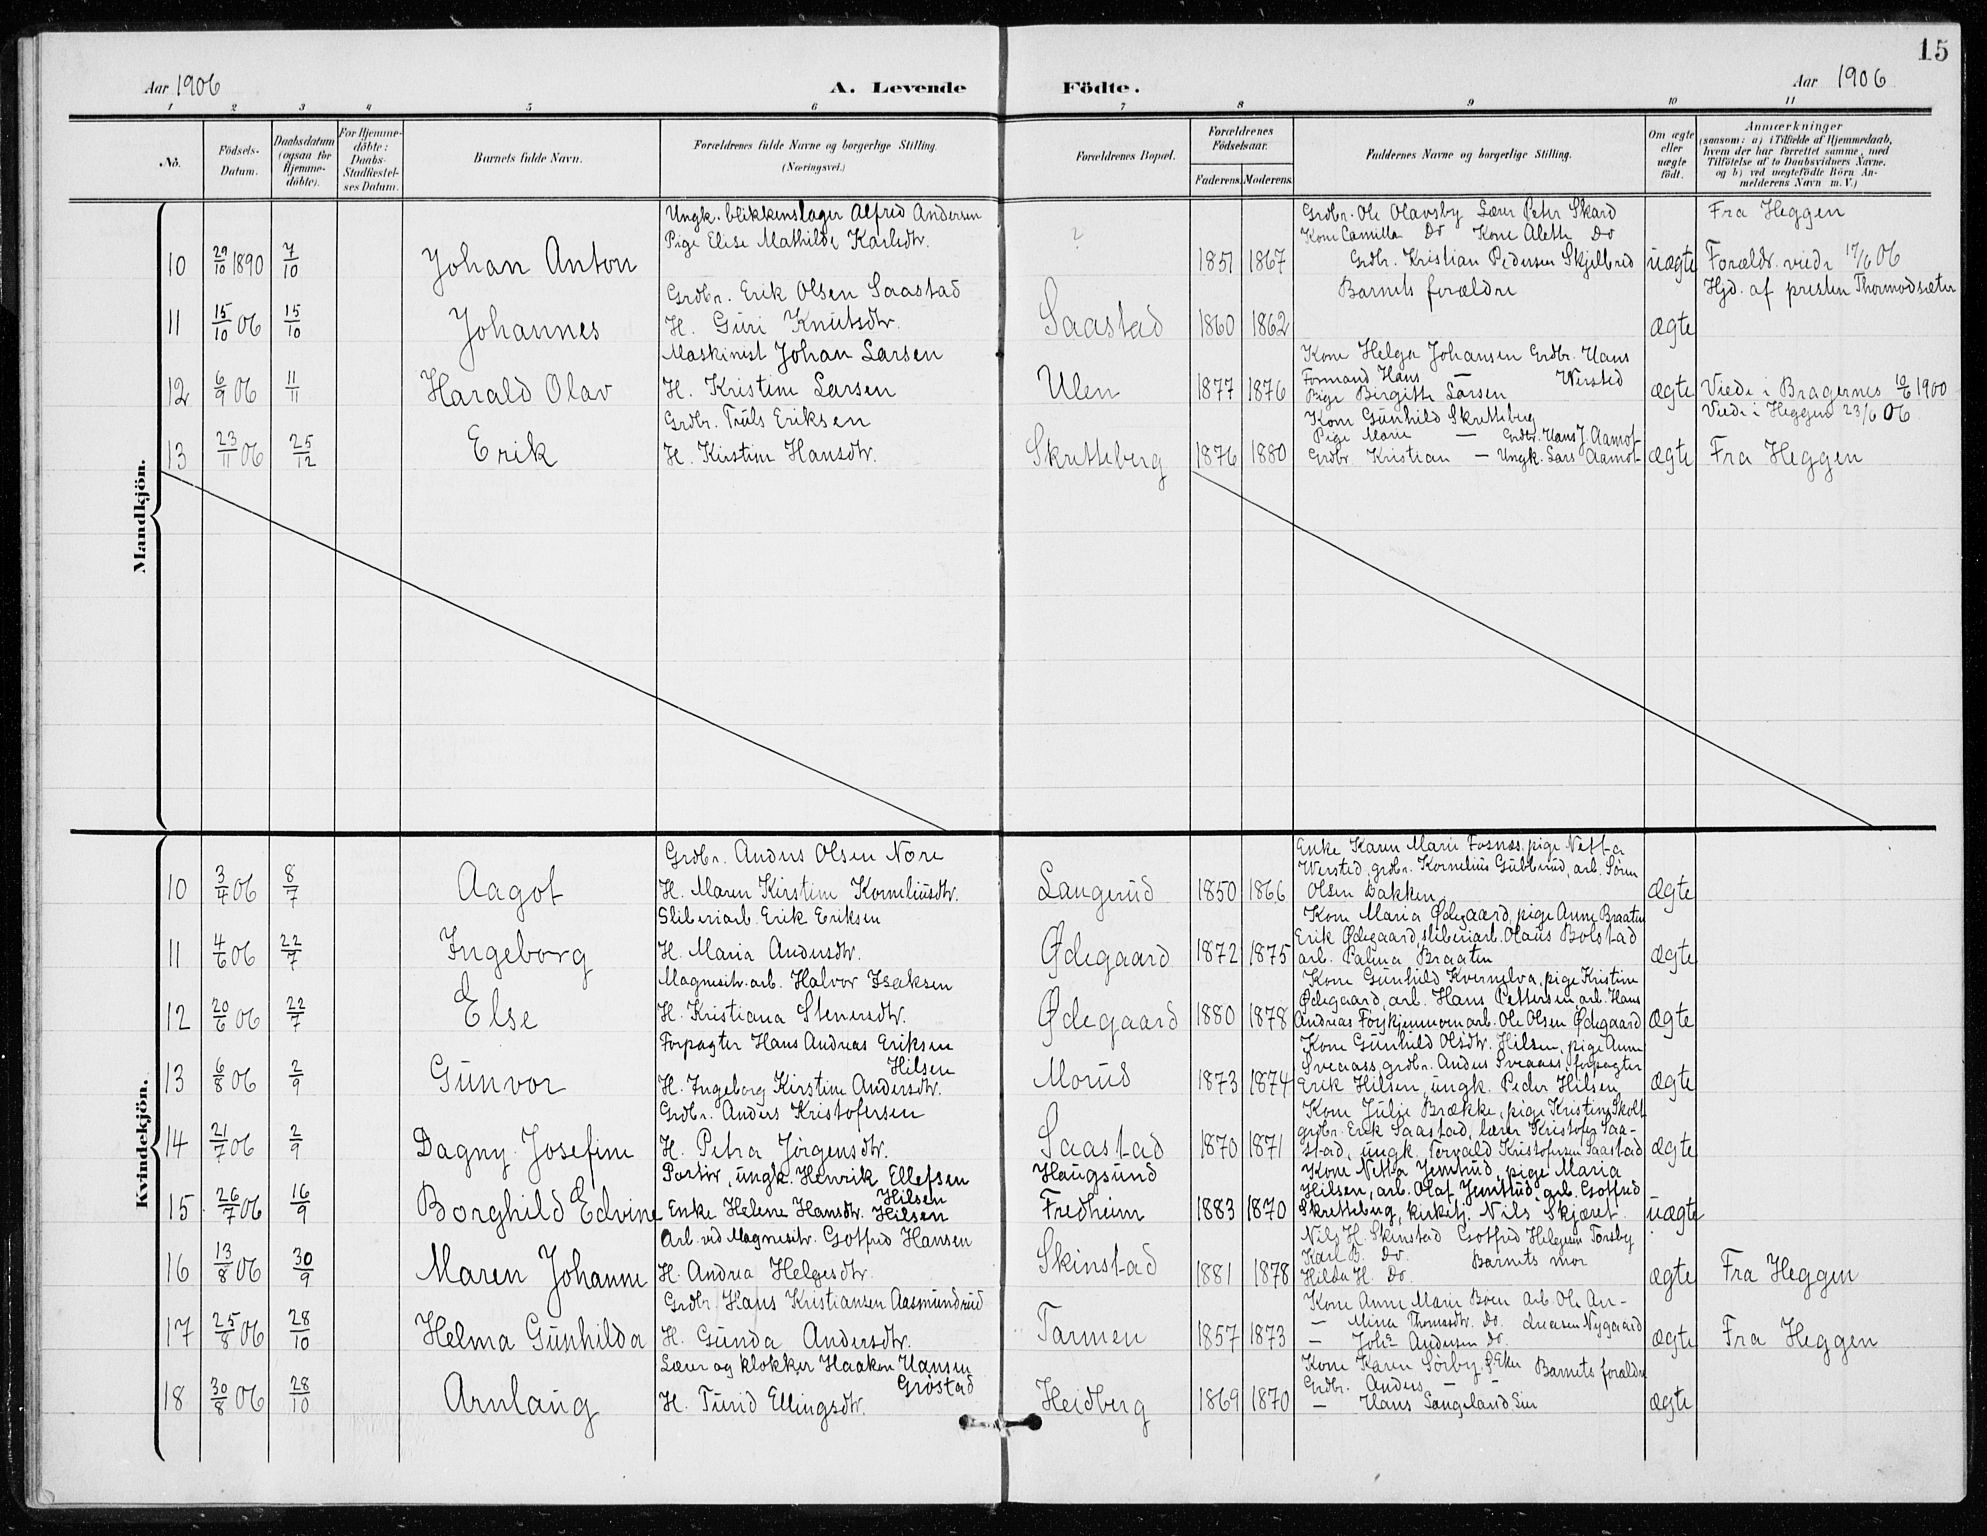 15
Aar 1906
A. Levende Födte.
Aar 1906
1 2 3 4 5 6 7 8 9 10 11
No.
Födsels-Datum.
Daabsdatum (ogsaa for Hjemme-döbte).
For Hjemme-döbte: Daabs-Stadfæstel-ses Datum.
Barnets fulde Navn.
Forældrenes fulde Navne og borgerlige Stilling. (Næringsvei.)
Forældrenes Bopæl.
Forældrenes Födselsaar.
Faderens. Moderens.
Faddernes Navne og borgerlige Stilling.
Om ægte eller uægte født.
Anmærkninger
(saasom: a) i Tilfælde af Hjemmedaab, hvem der har forrettet samme, med Tilföielse af to Daabsvidners Navne, og b) ved uægtefödte Börn An-melderens Navn m. V.)
Mandkjön.
Ungk. blikkenslager Alfred Andersen
Grdbr. Ole Olavsby Lærer Peter Skard
Fra Heggen
Pige Elise Mathilde Karlsdtr.
?
Kone Camilla Do Kone Alette Do
10 29/10 1890 7/10 Johan Anton 1851 1867 Grdbr. Kristian Pedersen Skjelbred uægte Forældr. viede 17/6 06
Grdbr. Erik Olsen Saastad
Barnets forældre
Hjd. af presten Thormodsæter
11 15/10 06 15/10 Johannes H. Guri Knutsdtr. Saastad 1860 1862 ægte
Maskinist Johan Larsen
Kone Helga Johansen Grdbr. Hans
12 6/9 06 11/11 Harald Olav H. Kristine Larsen Ulen 1877 1876 Formand Hans — Wersted ægte Viede i Bragernes 10/6 1900
Pige Birgitte Larsen
Grdbr. Truls Eriksen
Kone Gunhild Skretteberg
Viede i Heggen 23/6 06
Pige Marie — Grdbr. Hans J. Aamot
13 23/11 06 25/12 Erik H. Kirstine Hansdtr. Skretteberg 1876 1880 Grdbr. Kristian — Ungk. Lars Aamot ægte Fra Heggen
Kvindekjön.
Grdbr. Anders Olsen Nore
Enke Karen Marie Fosnæs, pige Netta
Wersted, grdbr. Kornelius Gubberud, arb. Søren
10 3/4 06 8/7 Aagot H. Maren Kirstine Korneliusdtr. Langerud 1850 1866 Olsen Bakken ægte
Sliberiarb. Erik Eriksen
Kone Maria Ødegaard, pige Anne Braaten
Erik Ødegaard, sliberiarb. Olaus Bolstad
11 4/6 06 22/7 Ingeborg H. Maria Andersdtr. Ødegaard 1872 1875 arb. Palma Braaten ægte
Magnesitv. arb. Halvor Isaksen
Kone Gunhild Kvernelva, pige Kristine
Ødegaard, arb. Hans Pettersen arb. Hans
12 20/6 06 22/7 Else H. Kristiana Stenersdtr. Ødegaard 1880 1878 Andreas arb. Ole Olsen Ødegaard ægte
Forpagter Hans Andreas Eriksen Hilsen
Kone Gunhild Olsdtr. Hilsen, pige Anne
Sveaass grdbr. Anders Sveaass, forpagter
13 6/8 06 2/9 Gunvor H. Ingeborg Kirstine Andersdtr. Morud 1873 1874 Erik Hilsen, ungk. Peder Hilsen ægte
Grdbr. Anders Kristofersen
Kone Julie Brække, pige Kristine Skolt
grdbr. Erik Saastad, lærer Kristofer Saa-
14 21/7 06 2/9 Dagny Josefine H. Petra Jørgensdtr. Saastad 1870 1871 stad, ungk. Torvald Kristofersen Saastad ægte
Portør, ungk. Henrik Ellefsen Hilsen
Haugsund
Kone Netta Jemtrud, pige Maria
Hilsen, arb. Olaf Jemtrud, arb. Gotfred
15 26/7 06 16/9 Borghild Edvine Enke Helene Hansdtr. Hilsen Fredheim 1883 1870 Skretteberg, kirketj. Nils Skjæret uægte
Arb. ved Magnesitv. Gotfred Hansen
Nils H. Skinstad Gotfred Helgesen Torsby
Karl B. Do. Barnets mor
16 13/8 06 30/9 Maren Johanne H. Andrea Helgesdtr. Skinstad 1881 1878 Hilda H. Do. ægte Fra Heggen
Grdbr. Hans Kristiansen Aasmundrud
Kone Anne Marie Boen Arb. Ole An-
— Mina Thomsdtr. Do. dreasen Nygaard
17 25/8 06 28/10 Helma Gunhilda H. Gunda Andersdtr. Tarmen 1857 1873 — Johs Andersen Do. ægte Fra Heggen
Lærer og klokker Haaken Hansen Grøstad
Kone Karen Sørby, Eker Barnets forældre
Grdbr. Anders — —
18 30/8 06 28/10 Arnlaug H. Turid Ellingsdtr. Heidberg 1869 1870 — Hans Langeland Eker ægte